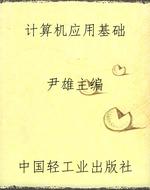 计算机应用基础
尹雄主编
中国轻工业出版社